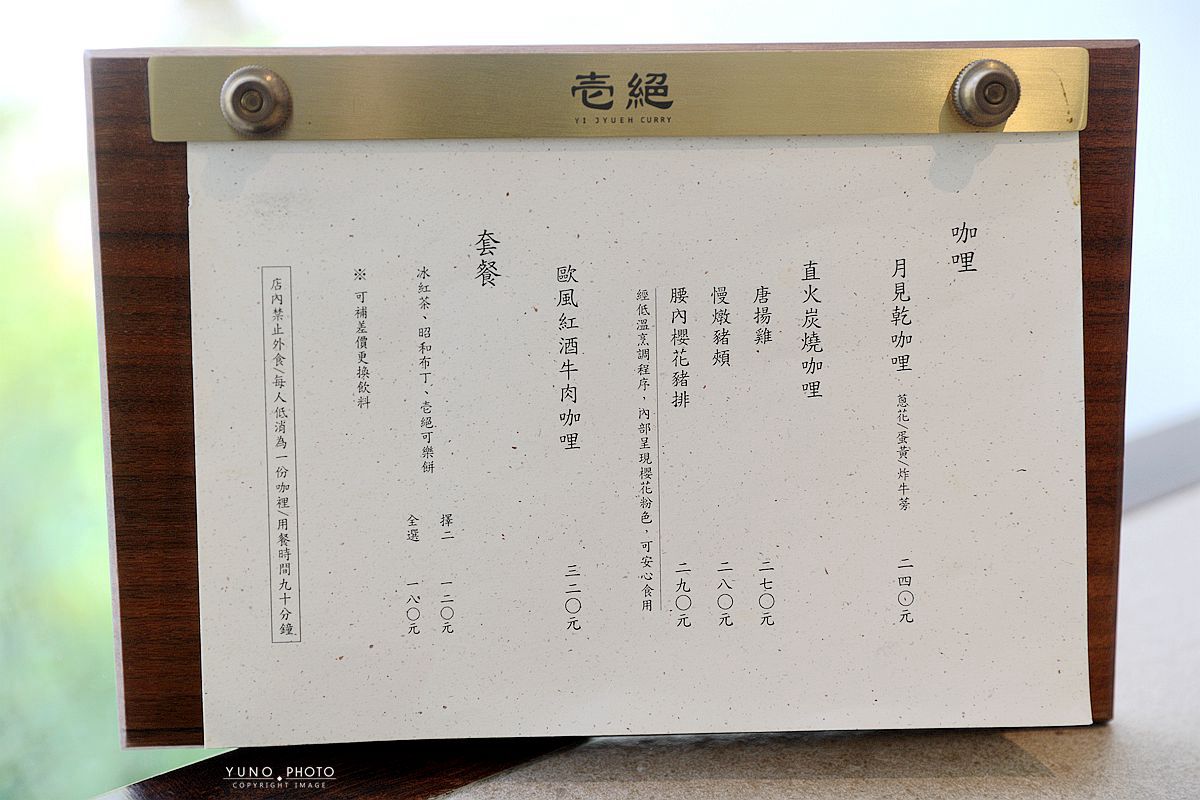 壱絕
YI JYUEH CURRY
咖哩
月見乾咖哩 蔥花/蛋黃/炸牛蒡 二四〇元
直火炭燒咖哩
唐揚雞 二七〇元
慢燉豬頰 二八〇元
腰內櫻花豬排 二九〇元
經低溫烹調程序，內部呈現櫻花粉色，可安心食用
歐風紅酒牛肉咖哩 三二〇元
套餐
擇二 一二〇元
冰紅茶、昭和布丁、壱絕可樂餅
全選 一八〇元
※ 可補差價更換飲料
店內禁止外食/每人低消為一份咖裡/用餐時間九十分鐘
YUNO PHOTO
COPYRIGHT IMAGE